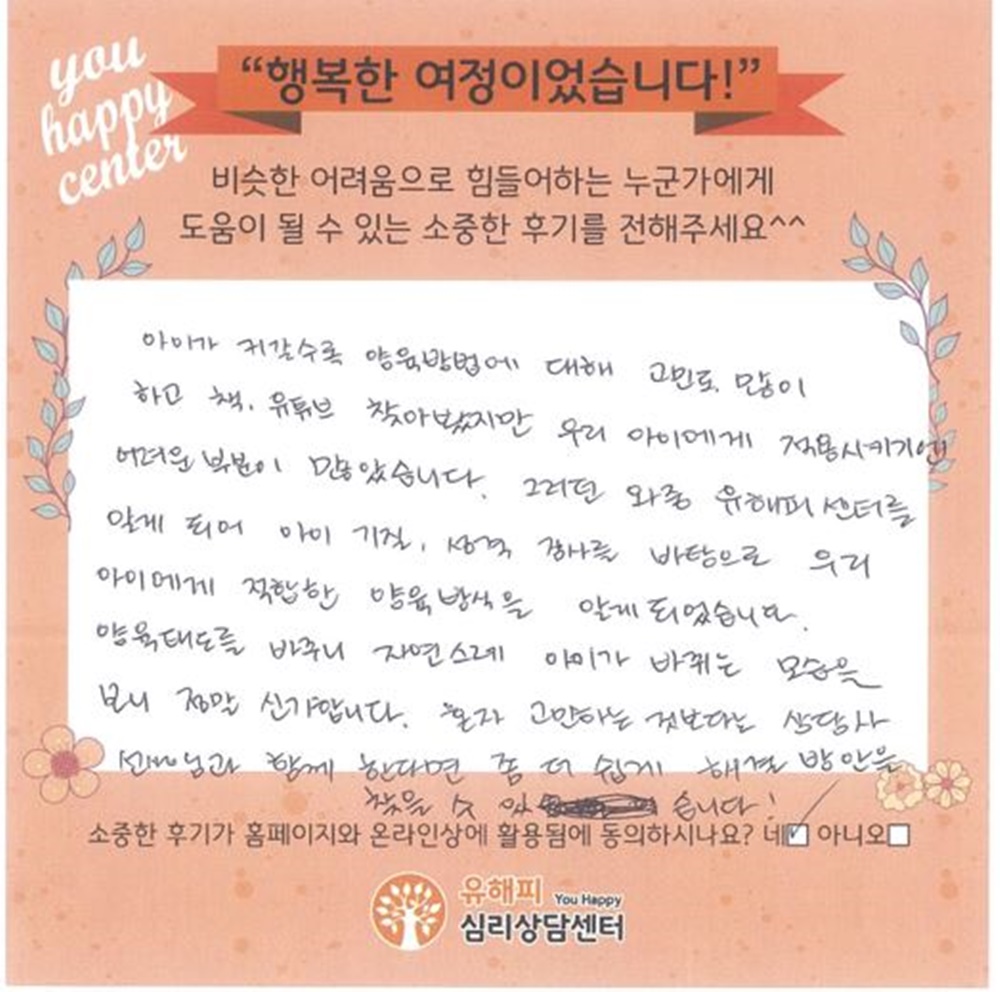 you
happy
center
“행복한 여정이었습니다!”
비슷한 어려움으로 힘들어하는 누군가에게
도움이 될 수 있는 소중한 후기를 전해주세요^^
아이가 커갈수록 양육방법에 대해 고민도 많이
하고 책, 유튜브 찾아봤지만 우리 아이에게 적용시키기엔
어려운 부분이 많았습니다. 그러던 와중 유해피 센터를
알게 되어 아이 기질, 성격 검사를 바탕으로 우리
아이에게 적합한 양육방식을 알게 되었습니다.
양육태도를 바꾸니 자연스레 아이가 바뀌는 모습을
보니 정말 신기합니다. 혼자 고민하는 것보다는 상담사
선생님과 함께 한다면 좀 더 쉽게 해결 방안을
찾을 수 있습니다!
소중한 후기가 홈페이지와 온라인상에 활용됨에 동의하시나요? 네☑ 아니오☐
유해피 You Happy
심리상담센터